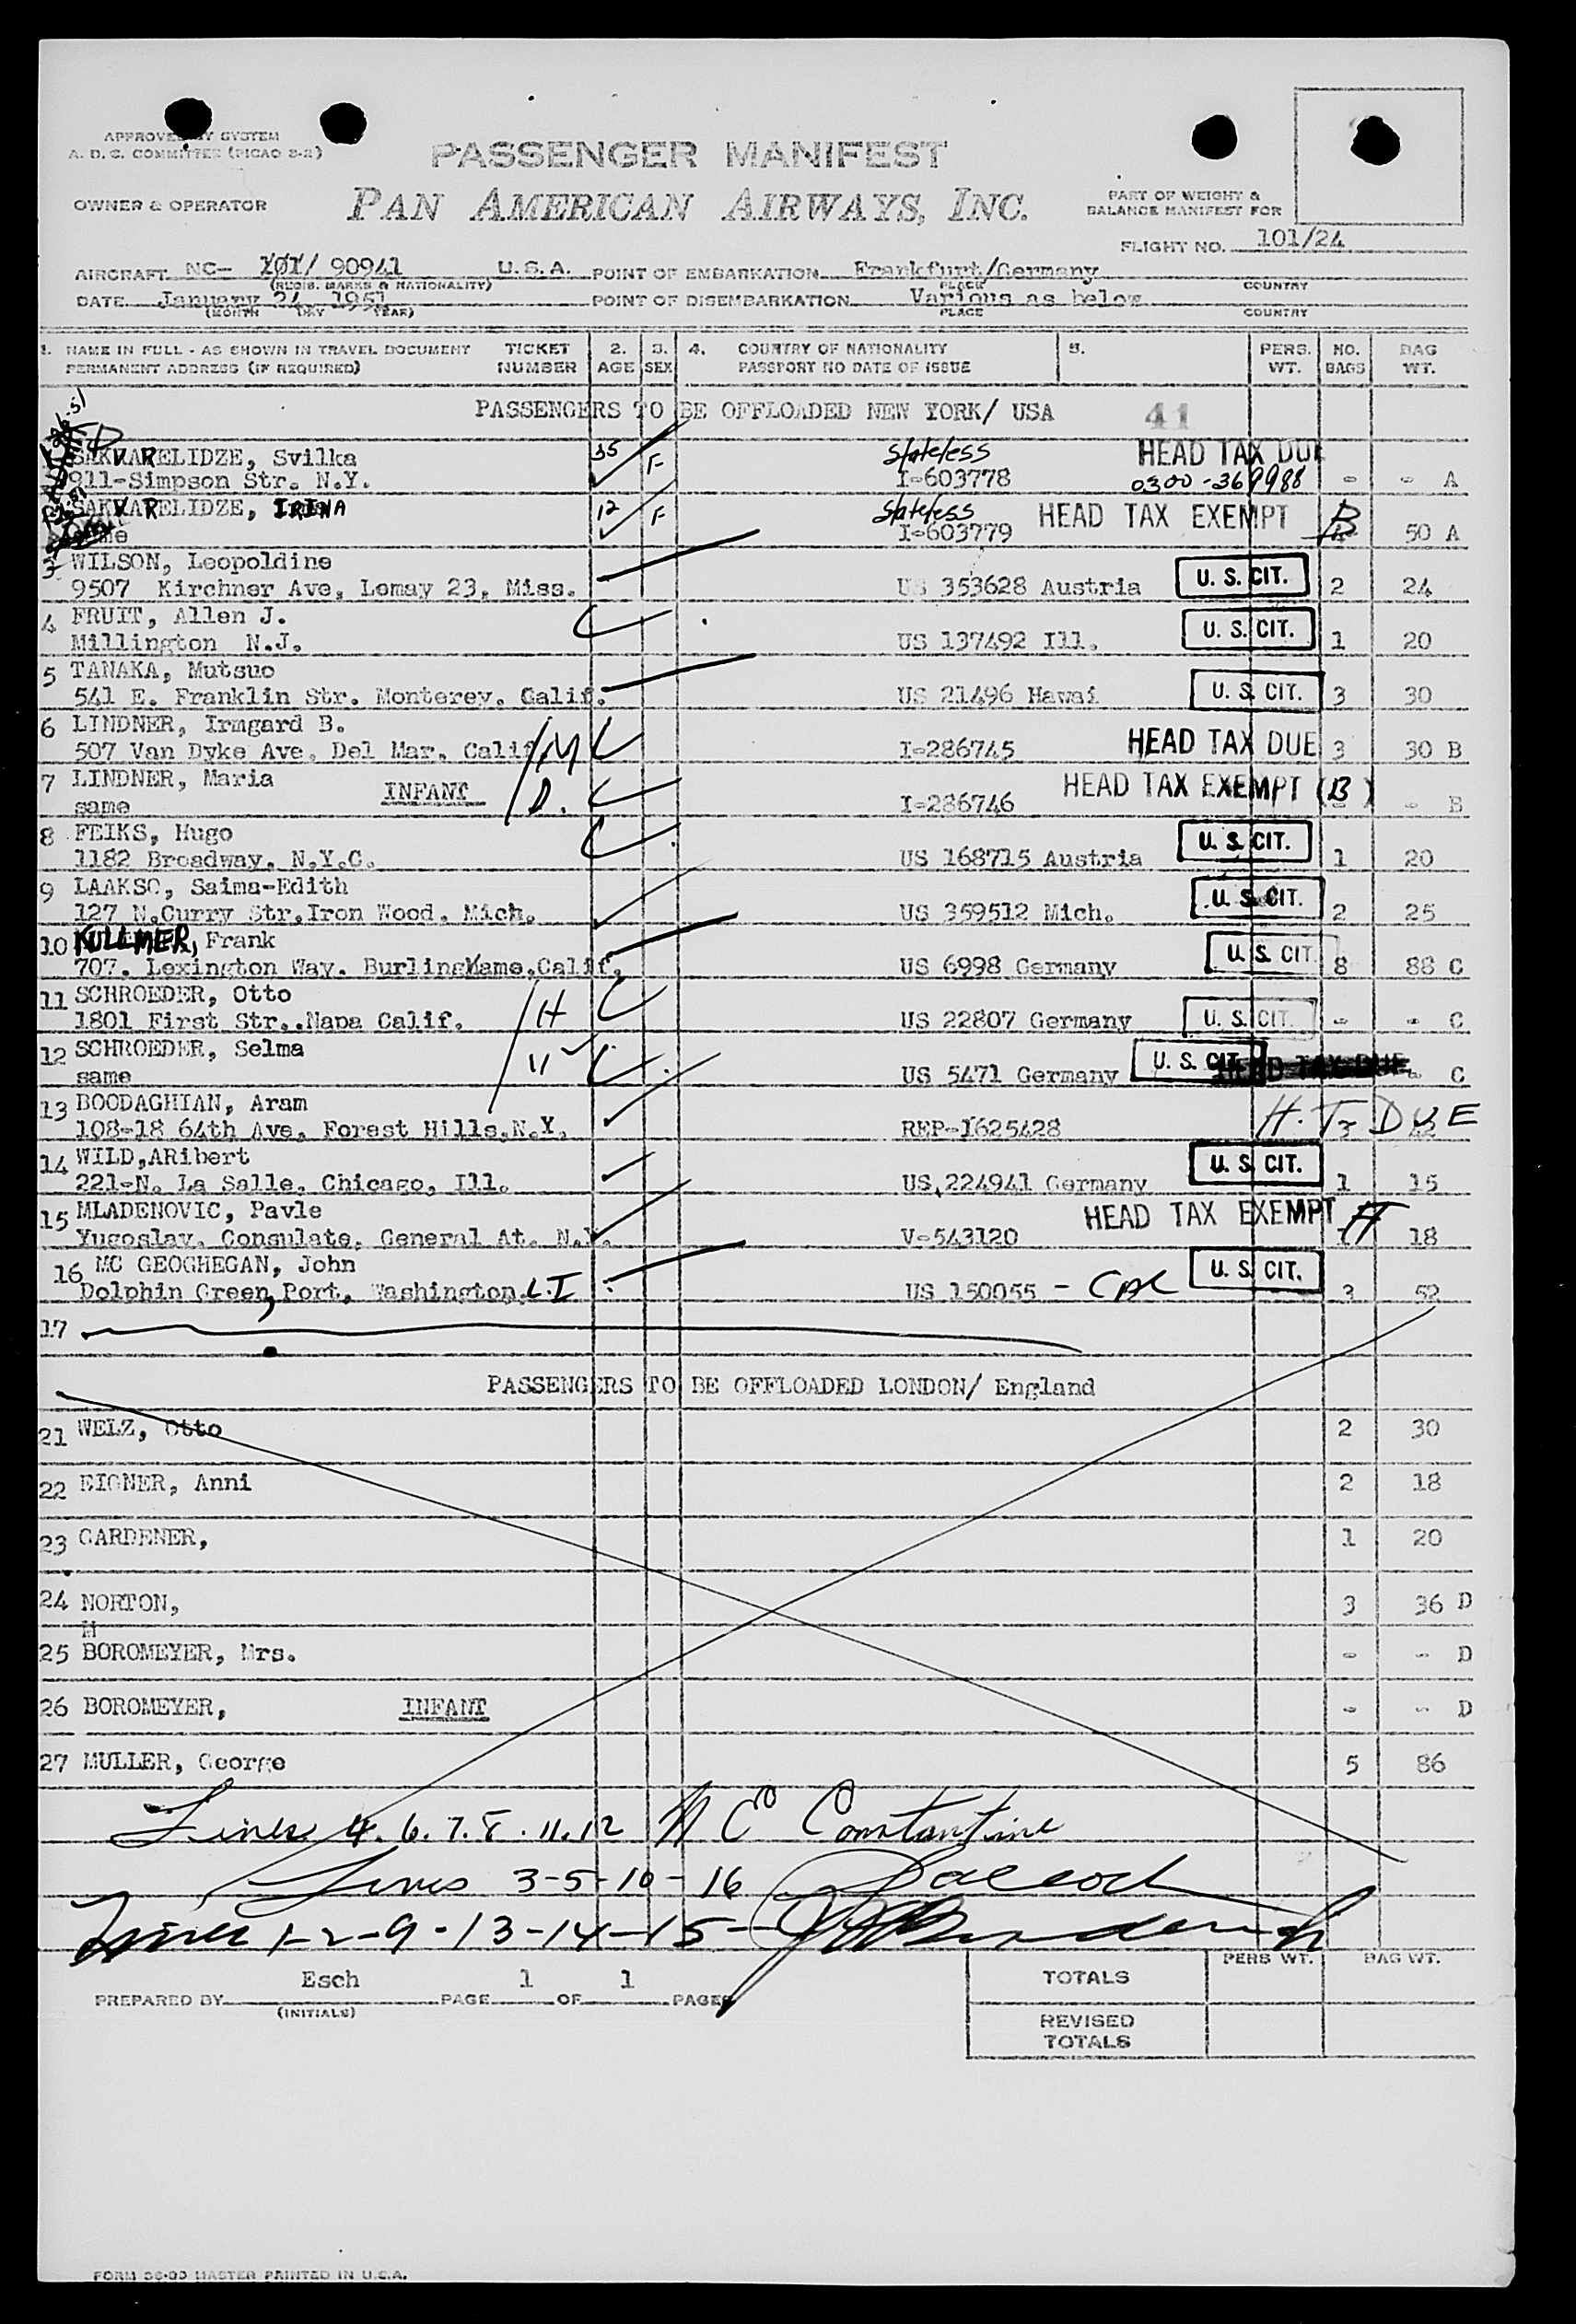 APPROVED BY SYSTEM
A. D. S. COMMITTEE (PICAO 3-2)
PASSENGER MANIFEST
OWNER & OPERATOR
PAN AMERICAN AIRWAYS, INC.
PART OF WEIGHT &
BALANCE MANIFEST FOR
FLIGHT NO. 101/24
AIRCRAFT NC- 101/ 90941 U.S.A. POINT OF EMBARKATION Frankfurt/Germany
(REGIS. MARKS & NATIONALITY) PLACE COUNTRY
DATE January 24, 1951 POINT OF DISEMBARKATION Various as below
(MONTH DAY YEAR) PLACE COUNTRY
1. NAME IN FULL - AS SHOWN IN TRAVEL DOCUMENT TICKET 2. 3. 4. COUNTRY OF NATIONALITY 5. PERS. NO. BAG
PERMANENT ADDRESS (IF REQUIRED) NUMBER AGE SEX PASSPORT NO DATE OF ISSUE WT. BAGS WT.
PASSENGERS TO BE OFFLOADED NEW YORK/ USA 41
SAKVARELIDZE, Svilka 35 F Stateless HEAD TAX DUE
911-Simpson Str. N.Y. I-603778 0300-369988 - - A
SAKVARELIDZE, IRINA 12 F Stateless HEAD TAX EXEMPT B
same I-603779 50 A
3 WILSON, Leopoldine
9507 Kirchner Ave, Lemay 23, Miss. US 353628 Austria U. S. CIT. 2 24
4 FRUIT, Allen J.
Millington N.J. US 137492 Ill. U. S. CIT. 1 20
5 TANAKA, Mutsuo
541 E. Franklin Str. Monterey. Calif. US 21496 Hawai U. S. CIT. 3 30
6 LINDNER, Irmgard B.
507 Van Dyke Ave, Del Mar, Calif M I-286745 HEAD TAX DUE 3 30 B
7 LINDNER, Maria INFANT D. HEAD TAX EXEMPT (B)
same I-286746 - - B
8 FEIKS, Hugo
1182 Broadway, N.Y.C. US 168715 Austria U. S. CIT. 1 20
9 LAAKSO, Saima-Edith
127 N.Curry Str,Iron Wood, Mich. US 359512 Mich. U. S. CIT. 2 25
10 KULLMER, Frank
707. Lexington Way. Burlingame,Calif. US 6998 Germany U. S. CIT. 8 88 C
11 SCHROEDER, Otto
1801 First Str,.Napa Calif. H US 22807 Germany U. S. CIT. - - C
12 SCHROEDER, Selma "
same US 5471 Germany U. S. CIT. HEAD TAX DUE C
13 BOODAGHIAN, Aram
108-18 64th Ave, Forest Hills,N.Y. REP-1625428 H. T. DUE
14 WILD,ARibert
221-N. La Salle, Chicago, Ill. US,224941 Germany U. S. CIT. 1 15
15 MLADENOVIC, Pavle HEAD TAX EXEMPT
Yugoslav. Consulate, General At. N.Y. V-543120 18
16 MC GEOGHEGAN, John
Dolphin Green, Port, Washington, L.I US 150055 - U. S. CIT. 3 52
17
PASSENGERS TO BE OFFLOADED LONDON/ England
21 WELZ, Otto 2 30
22 EIGNER, Anni 2 18
23 GARDENER, 1 20
24 NORTON, 3 36 D
H
25 BOROMEYER, Mrs. - - D
26 BOROMEYER, INFANT - - D
27 MULLER, George 5 86
Lines 4. 6. 7. 8. 11. 12 N C Constantine
Lines 3-5-10-16
Lines 1-2-9-13-14-15-
PREPARED BY Esch PAGE 1 OF 1 PAGES
(INITIALS)
PERS WT. BAG WT.
TOTALS
REVISED
TOTALS
MASTER PRINTED IN U.S.A.